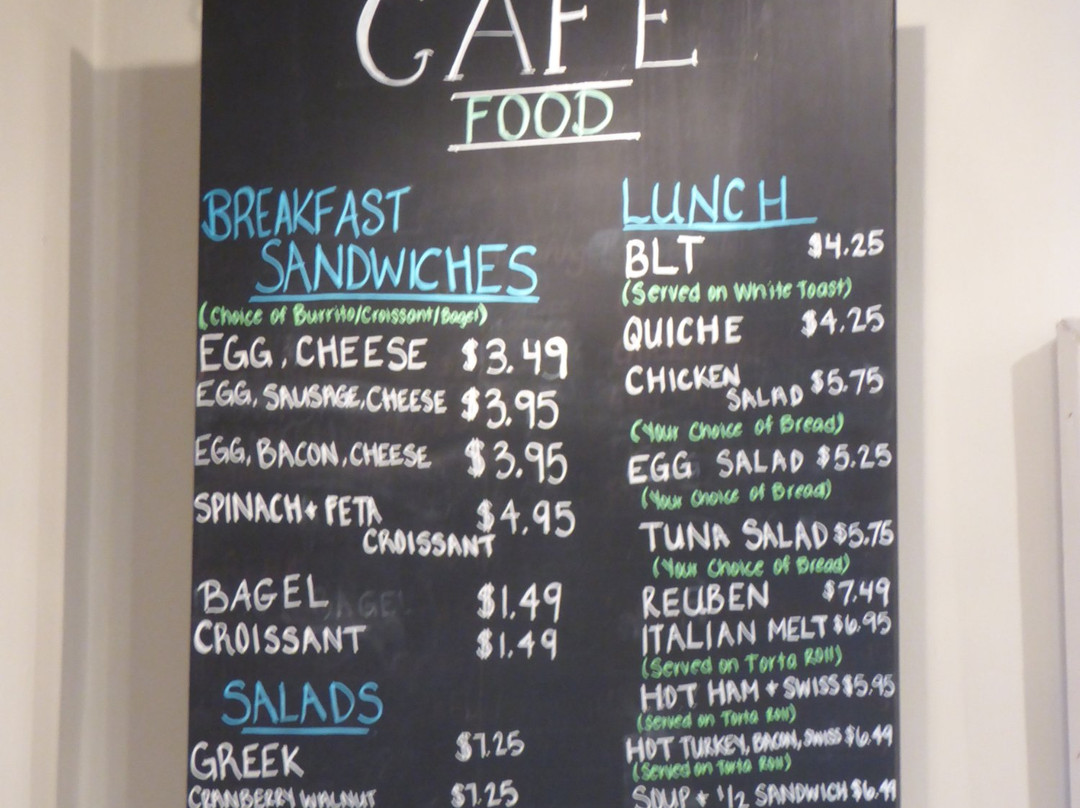 CAFE
FOOD
BREAKFAST
SANDWICHES
(Choice of Burrito/Croissant/Bagel)
EGG, CHEESE $3.49
EGG, SAUSAGE, CHEESE $3.95
EGG, BACON, CHEESE $3.95
SPINACH + FETA
CROISSANT $4.95
BAGEL $1.49
CROISSANT $1.49
SALADS
GREEK $7.25
CRANBERRY WALNUT $7.25
LUNCH
BLT $4.25
(Served on White Toast)
QUICHE $4.25
CHICKEN
SALAD $5.75
(Your Choice of Bread)
EGG SALAD $5.25
(Your Choice of Bread)
TUNA SALAD $5.75
(Your Choice of Bread)
REUBEN $7.49
ITALIAN MELT $6.95
(Served on Torta Roll)
HOT HAM + SWISS $5.95
(Served on Torta Roll)
HOT TURKEY, BACON, SWISS $6.49
(Served on Torta Roll)
SOUP + 1/2 SANDWICH $6.49